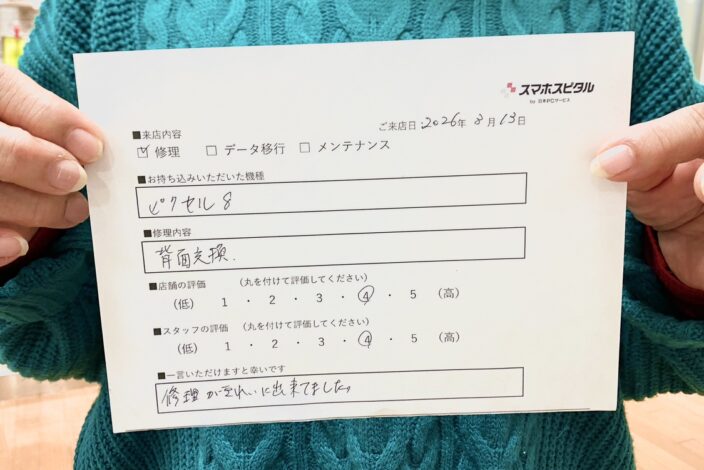 スマホスピタル
by 日本PCサービス
ご来店日:2026年 3月13日
■来店内容
☑ 修理 □ データ移行 □ メンテナンス
■お持ち込みいただいた機種
ピクセル8
■修理内容
背面交換.
■店舗の評価 (丸を付けて評価してください)
(低) 1 ・ 2 ・ 3 ・ ④ ・ 5 (高)
■スタッフの評価 (丸を付けて評価してください)
(低) 1 ・ 2 ・ 3 ・ ④ ・ 5 (高)
■一言いただけますと幸いです
修理がきれいに出来てました。